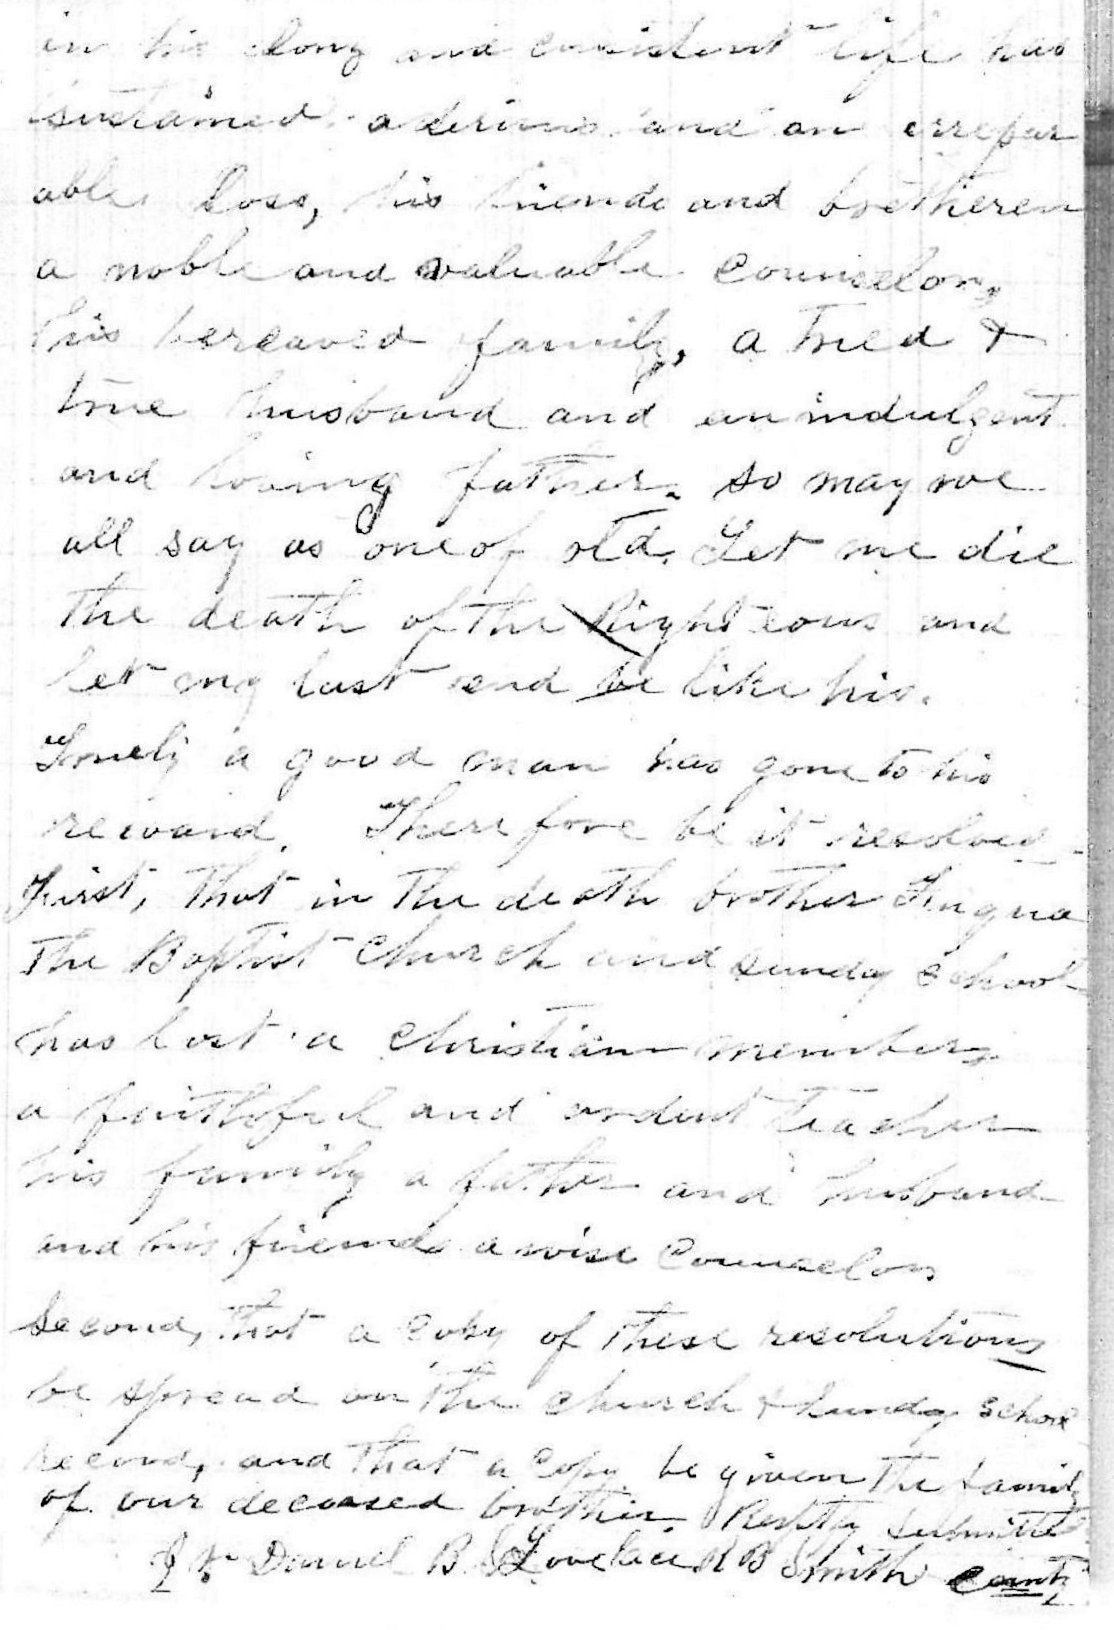 in his long and consistent life has
sustained a serious and an irrepar
able loss, his friends and bretheren
a noble and valuable counselor,
his bereaved family, a tried &
true husband and an indulgent
and loving father. so may we
all say as one of old. Let me die
the death of the Righteous and
let my last end be like his.
Surely a good man has gone to his
reward. Therefore be it resolved
First, that in the death brother
The Baptist Church and sunday school
has lost a christian member,
a faithful and ardent teacher
his family a father and husband
and his friends a wise counselor
Second, that a copy of these resolutions
be spread on the church & Sunday school
record, and that a copy be given the family
of our deceased brother. submitted
Daniel B S Lovelace R B Smith